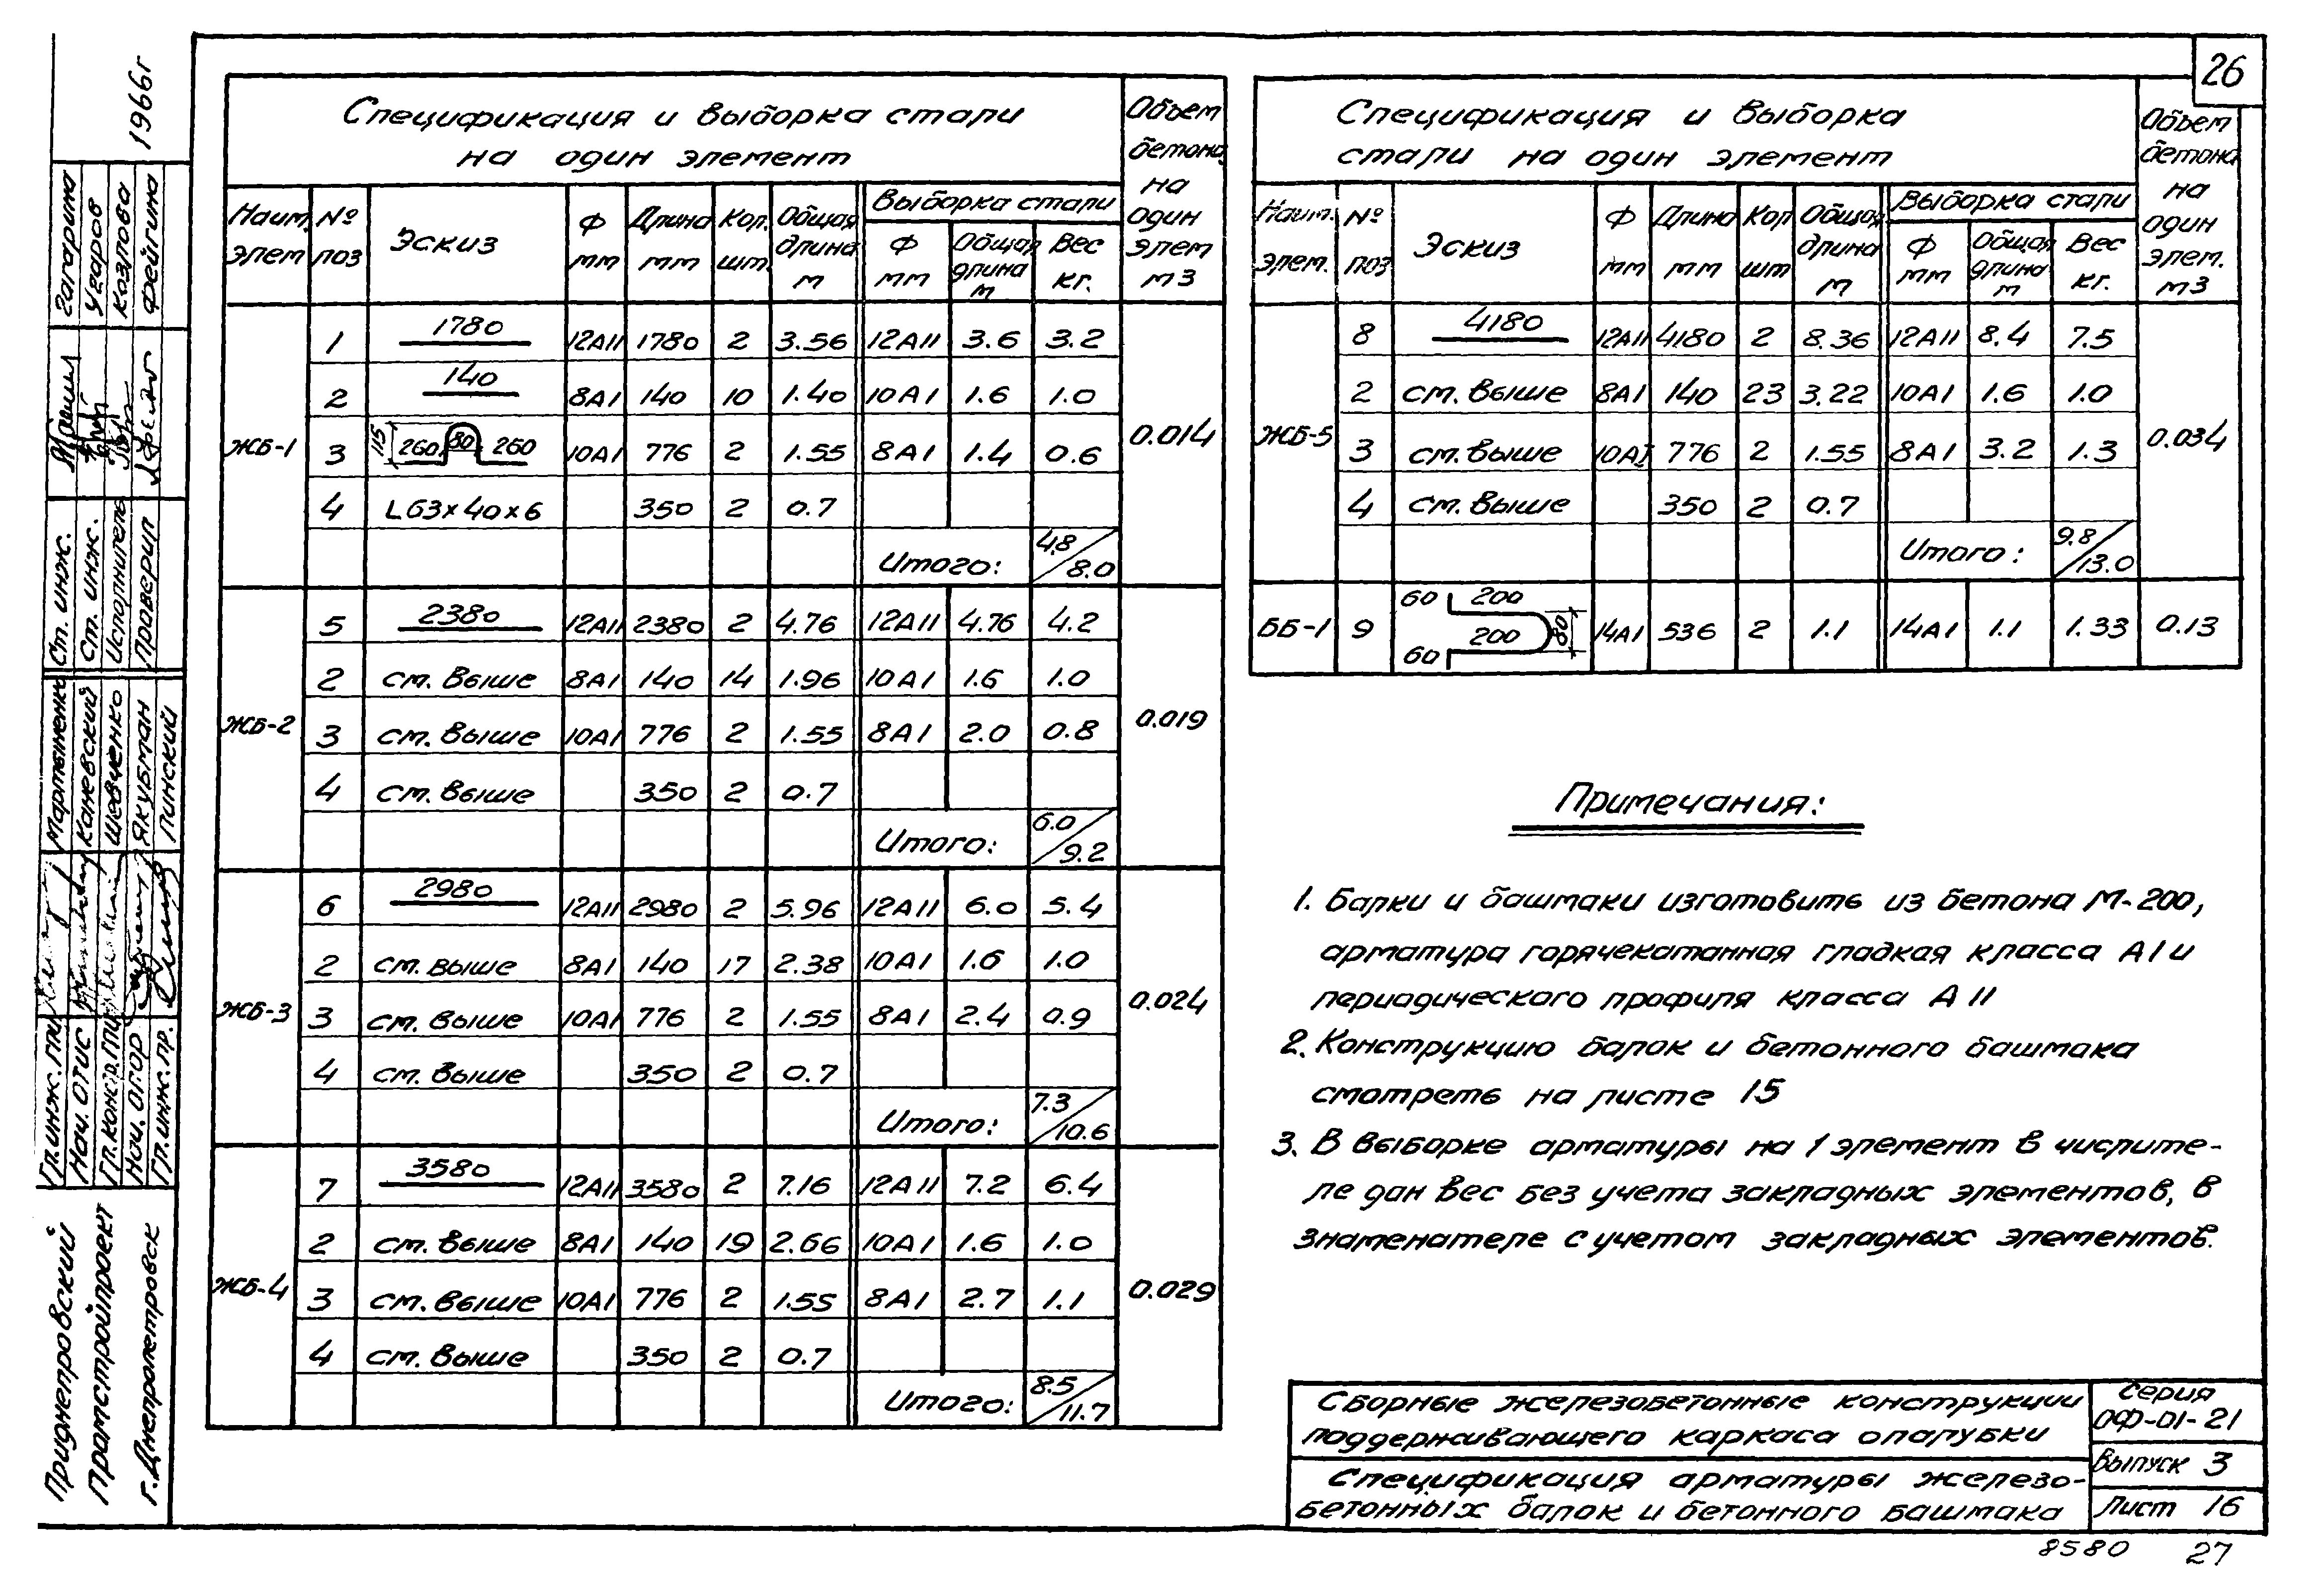 26
Спецификация и выборка стали
на один элемент
Объем бетона на один элем м3
Наим. элем
№ поз
Эскиз
Ф мм
Длина мм
Кол. шт.
Общая длина м
Выборка стали
Ф мм
Общая длина м
Вес кг.
ЖБ-1
1 1780 12АII 1780 2 3.56 12АII 3.6 3.2
2 140 8АI 140 10 1.40 10АI 1.6 1.0
3 115 260 80 260 10АI 776 2 1.55 8АI 1.4 0.6
0.014
4 L63×40×6 350 2 0.7
Итого: 4.8/8.0
ЖБ-2
5 2380 12АII 2380 2 4.76 12АII 4.76 4.2
2 см. выше 8АI 140 14 1.96 10АI 1.6 1.0
3 см. выше 10АI 776 2 1.55 8АI 2.0 0.8
0.019
4 см. выше 350 2 0.7
Итого: 6.0/9.2
ЖБ-3
6 2980 12АII 2980 2 5.96 12АII 6.0 5.4
2 см. выше 8АI 140 17 2.38 10АI 1.6 1.0
3 см. выше 10АI 776 2 1.55 8АI 2.4 0.9
0.024
4 см. выше 350 2 0.7
Итого: 7.3/10.6
ЖБ-4
7 3580 12АII 3580 2 7.16 12АII 7.2 6.4
2 см. выше 8АI 140 19 2.66 10АI 1.6 1.0
3 см. выше 10АI 776 2 1.55 8АI 2.7 1.1
0.029
4 см. выше 350 2 0.7
Итого: 8.5/11.7
Спецификация и выборка
стали на один элемент
Объем бетона на один элем. м3
Наим. элем.
№ поз
Эскиз
Ф мм
Длина мм
Кол шт
Общая длина м
Выборка стали
Ф мм
Общая длина м
Вес кг.
ЖБ-5
8 4180 12АII 4180 2 8.36 12АII 8.4 7.5
2 см. выше 8АI 140 23 3.22 10АI 1.6 1.0
3 см. выше 10АI 776 2 1.55 8АI 3.2 1.3
0.034
4 см. выше 350 2 0.7
Итого: 9.8/13.0
ББ-1 9 60 200 200 60 80 14АI 536 2 1.1 14АI 1.1 1.33 0.13
Примечания:
1. Балки и башмаки изготовить из бетона М-200,
арматура горячекатанная гладкая класса АI и
периодического профиля класса АII
2. Конструкцию балок и бетонного башмака
смотреть на листе 15
3. В выборке арматуры на 1 элемент в числите-
ле дан вес без учета закладных элементов, в
знаменателе с учетом закладных элементов.
Сборные железобетонные конструкции
поддерживающего каркаса опалубки
Серия
ОФ-01-21
Выпуск 3
Спецификация арматуры железо-
бетонных балок и бетонного башмака
Лист 16
8580 27
1966г
Гагарина
Угаров
Козлова
Фейгина
Ст. инж.
Ст. инж.
Исполнитель
Проверил
Мартыненко
Каневский
Шевченко
Якубман
Пинский
Гл. инж. ПИ
Нач. ОТИС
Гл. констр. ПИ
Нач. ОГОР
Гл. инж. пр.
Приднепровский
Промстройпроект
г. Днепропетровск